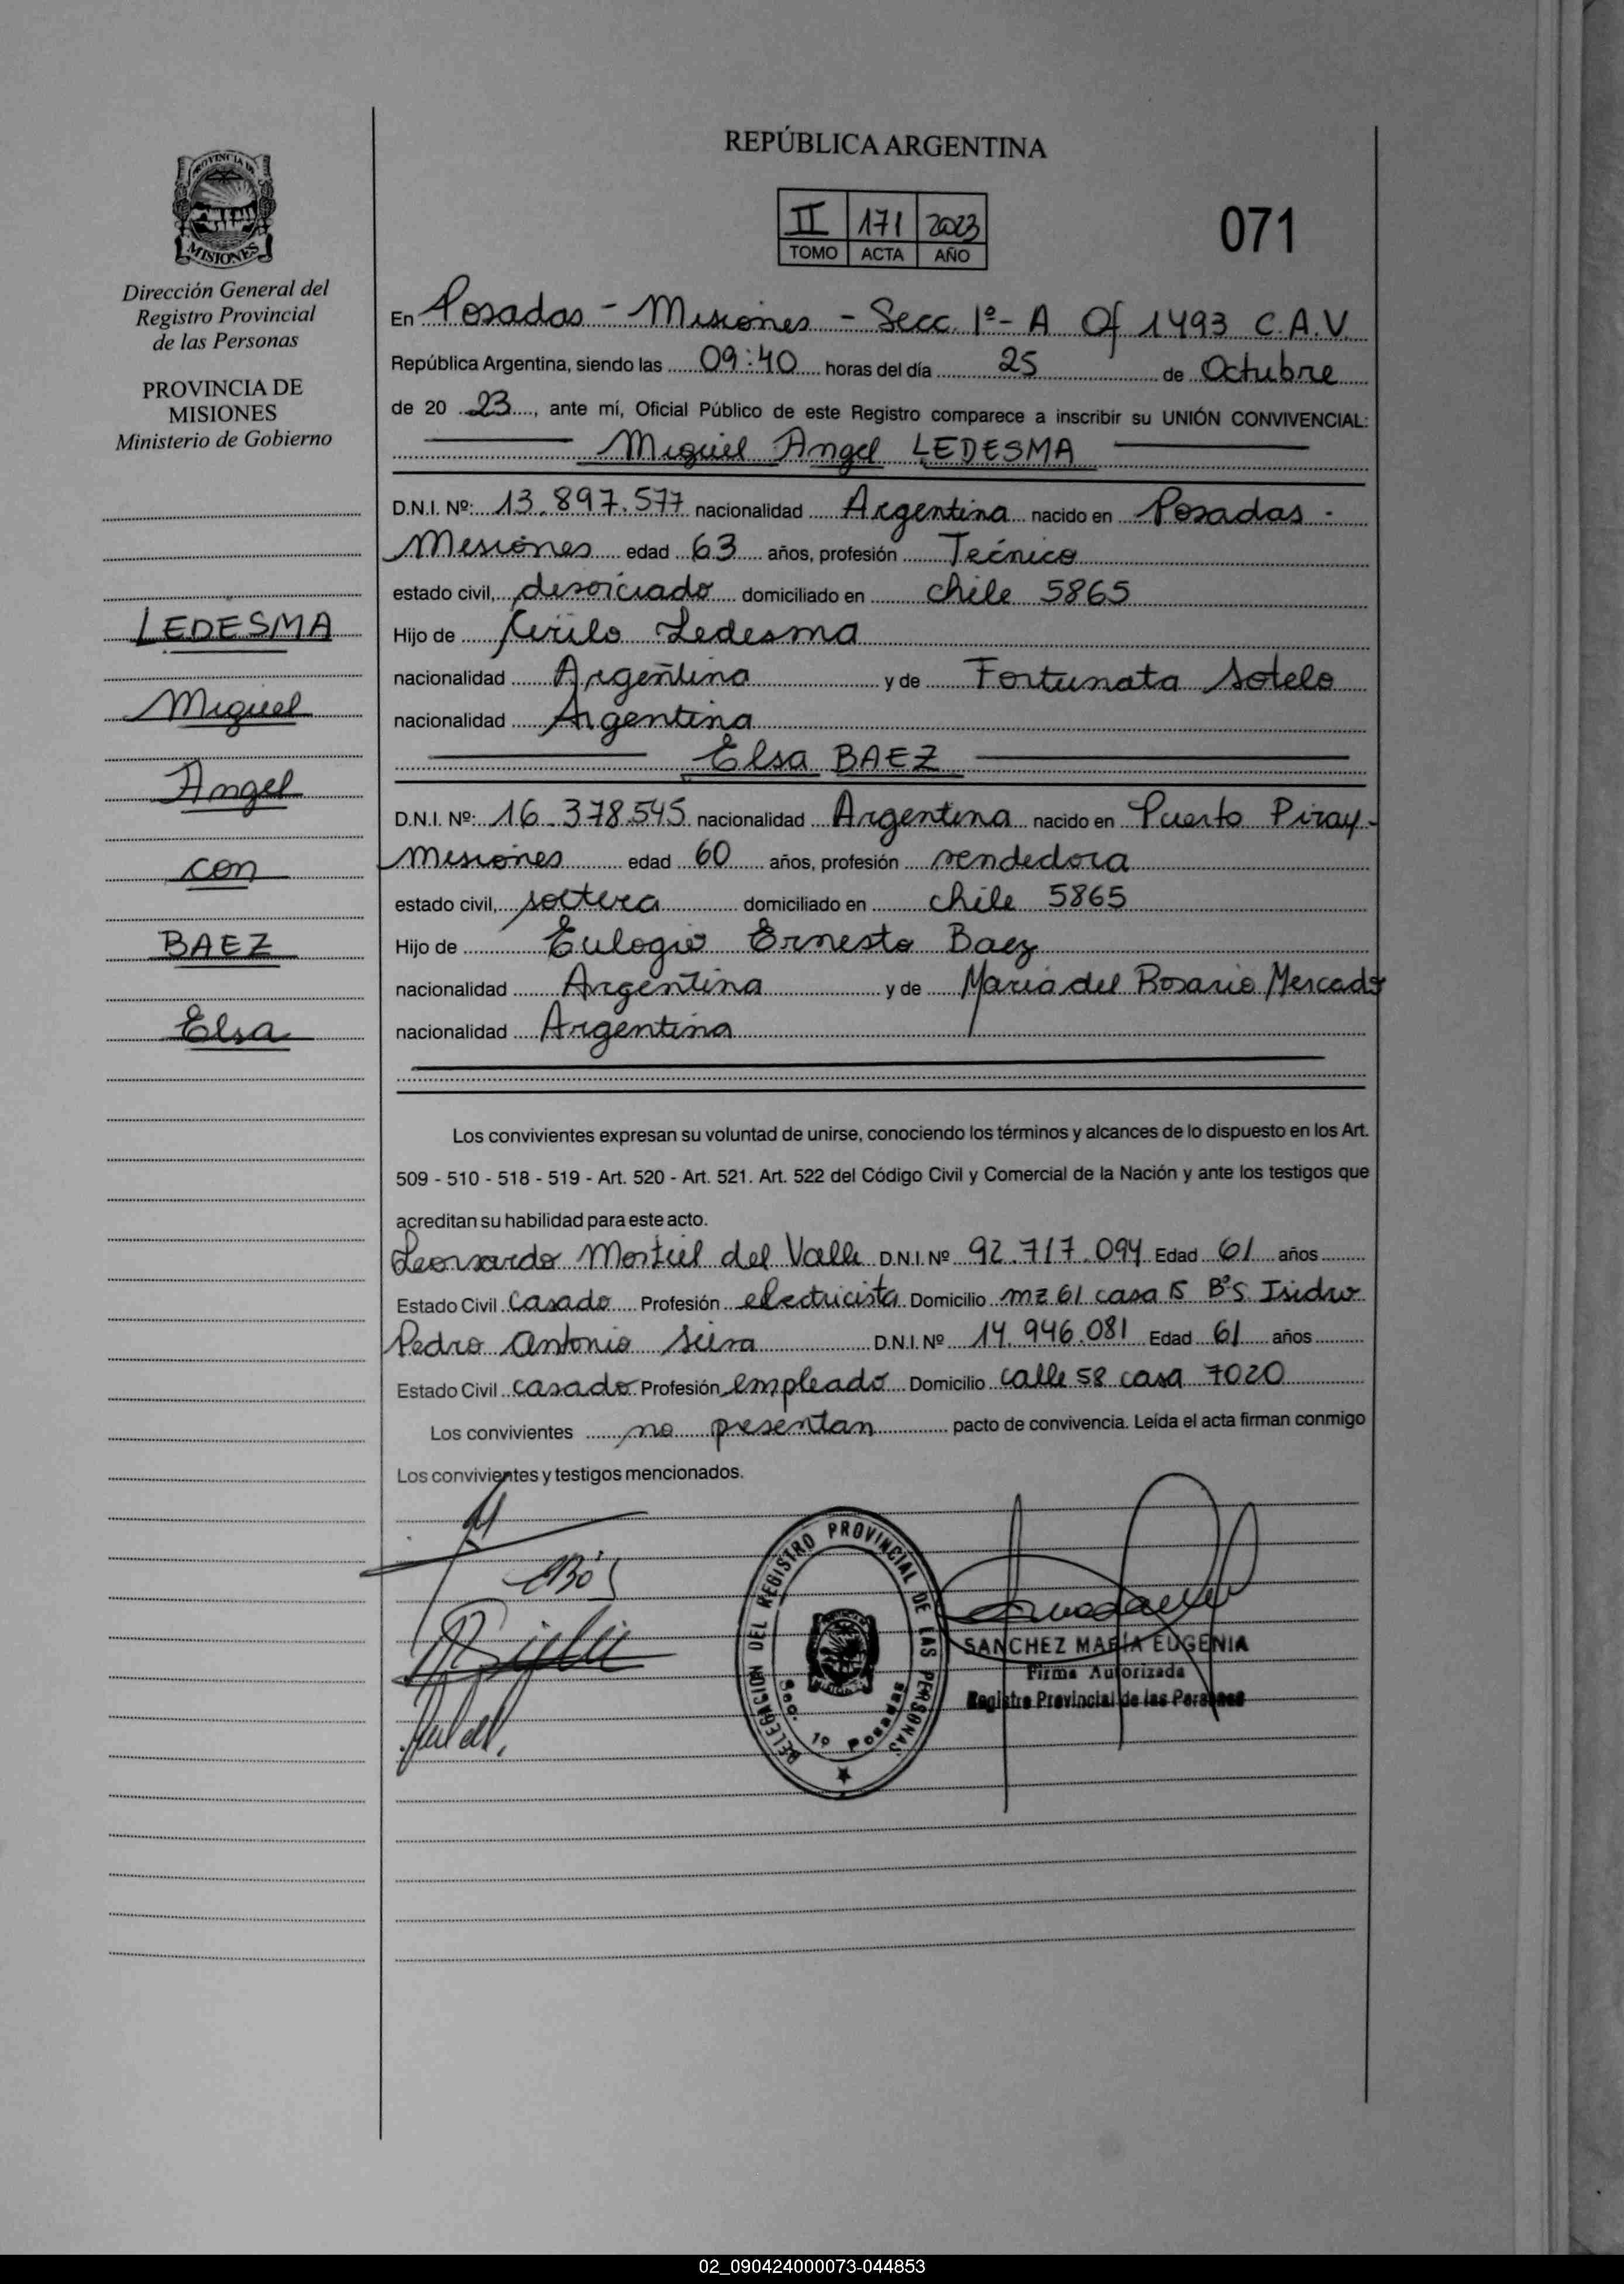 REPÚBLICA ARGENTINA
II 171 2023
TOMO ACTA AÑO
071
PROVINCIA DE
MISIONES
Dirección General del
Registro Provincial
de las Personas
PROVINCIA DE
MISIONES
Ministerio de Gobierno
LEDESMA
Miguel
Angel
con
BAEZ
Elsa
En Posadas - Misiones - Secc 1º - A Of 1493 C.A.V.
República Argentina, siendo las 09:40 horas del día 25 de Octubre
de 20 23, ante mí, Oficial Público de este Registro comparece a inscribir su UNIÓN CONVIVENCIAL:
Miguel Angel LEDESMA
D.N.I. Nº: 13.897.577 nacionalidad Argentina nacido en Posadas -
Misiones edad 63 años, profesión Técnico
estado civil, divorciado domiciliado en chile 5865
Hijo de Cirilo Ledesma
nacionalidad Argentina y de Fortunata Sotelo
nacionalidad Argentina
Elsa BAEZ
D.N.I. Nº: 16.378.545 nacionalidad Argentina nacido en Puerto Piray -
Misiones edad 60 años, profesión vendedora
estado civil, soltera domiciliado en chile 5865
Hijo de Eulogio Ernesto Baez
nacionalidad Argentina y de Maria del Rosario Mercado
nacionalidad Argentina
Los convivientes expresan su voluntad de unirse, conociendo los términos y alcances de lo dispuesto en los Art.
509 - 510 - 518 - 519 - Art. 520 - Art. 521. Art. 522 del Código Civil y Comercial de la Nación y ante los testigos que
acreditan su habilidad para este acto.
Leonardo Montiel del Valle D.N.I. Nº 92.717.094 Edad 61 años
Estado Civil Casado Profesión electricista Domicilio mz 61 casa 15 Bº S. Isidro
Pedro Antonio D.N.I. Nº 14.946.081 Edad 61 años
Estado Civil casado Profesión empleado Domicilio calle 58 casa 7020
Los convivientes no presentan pacto de convivencia. Leída el acta firman conmigo
Los convivientes y testigos mencionados.
DELEGACION DEL REGISTRO PROVINCIAL DE LAS PERSONAS
Sec. 1º Posadas
SANCHEZ MARÍA EUGENIA
Firma Autorizada
Registro Provincial de las Personas
02_090424000073-044853